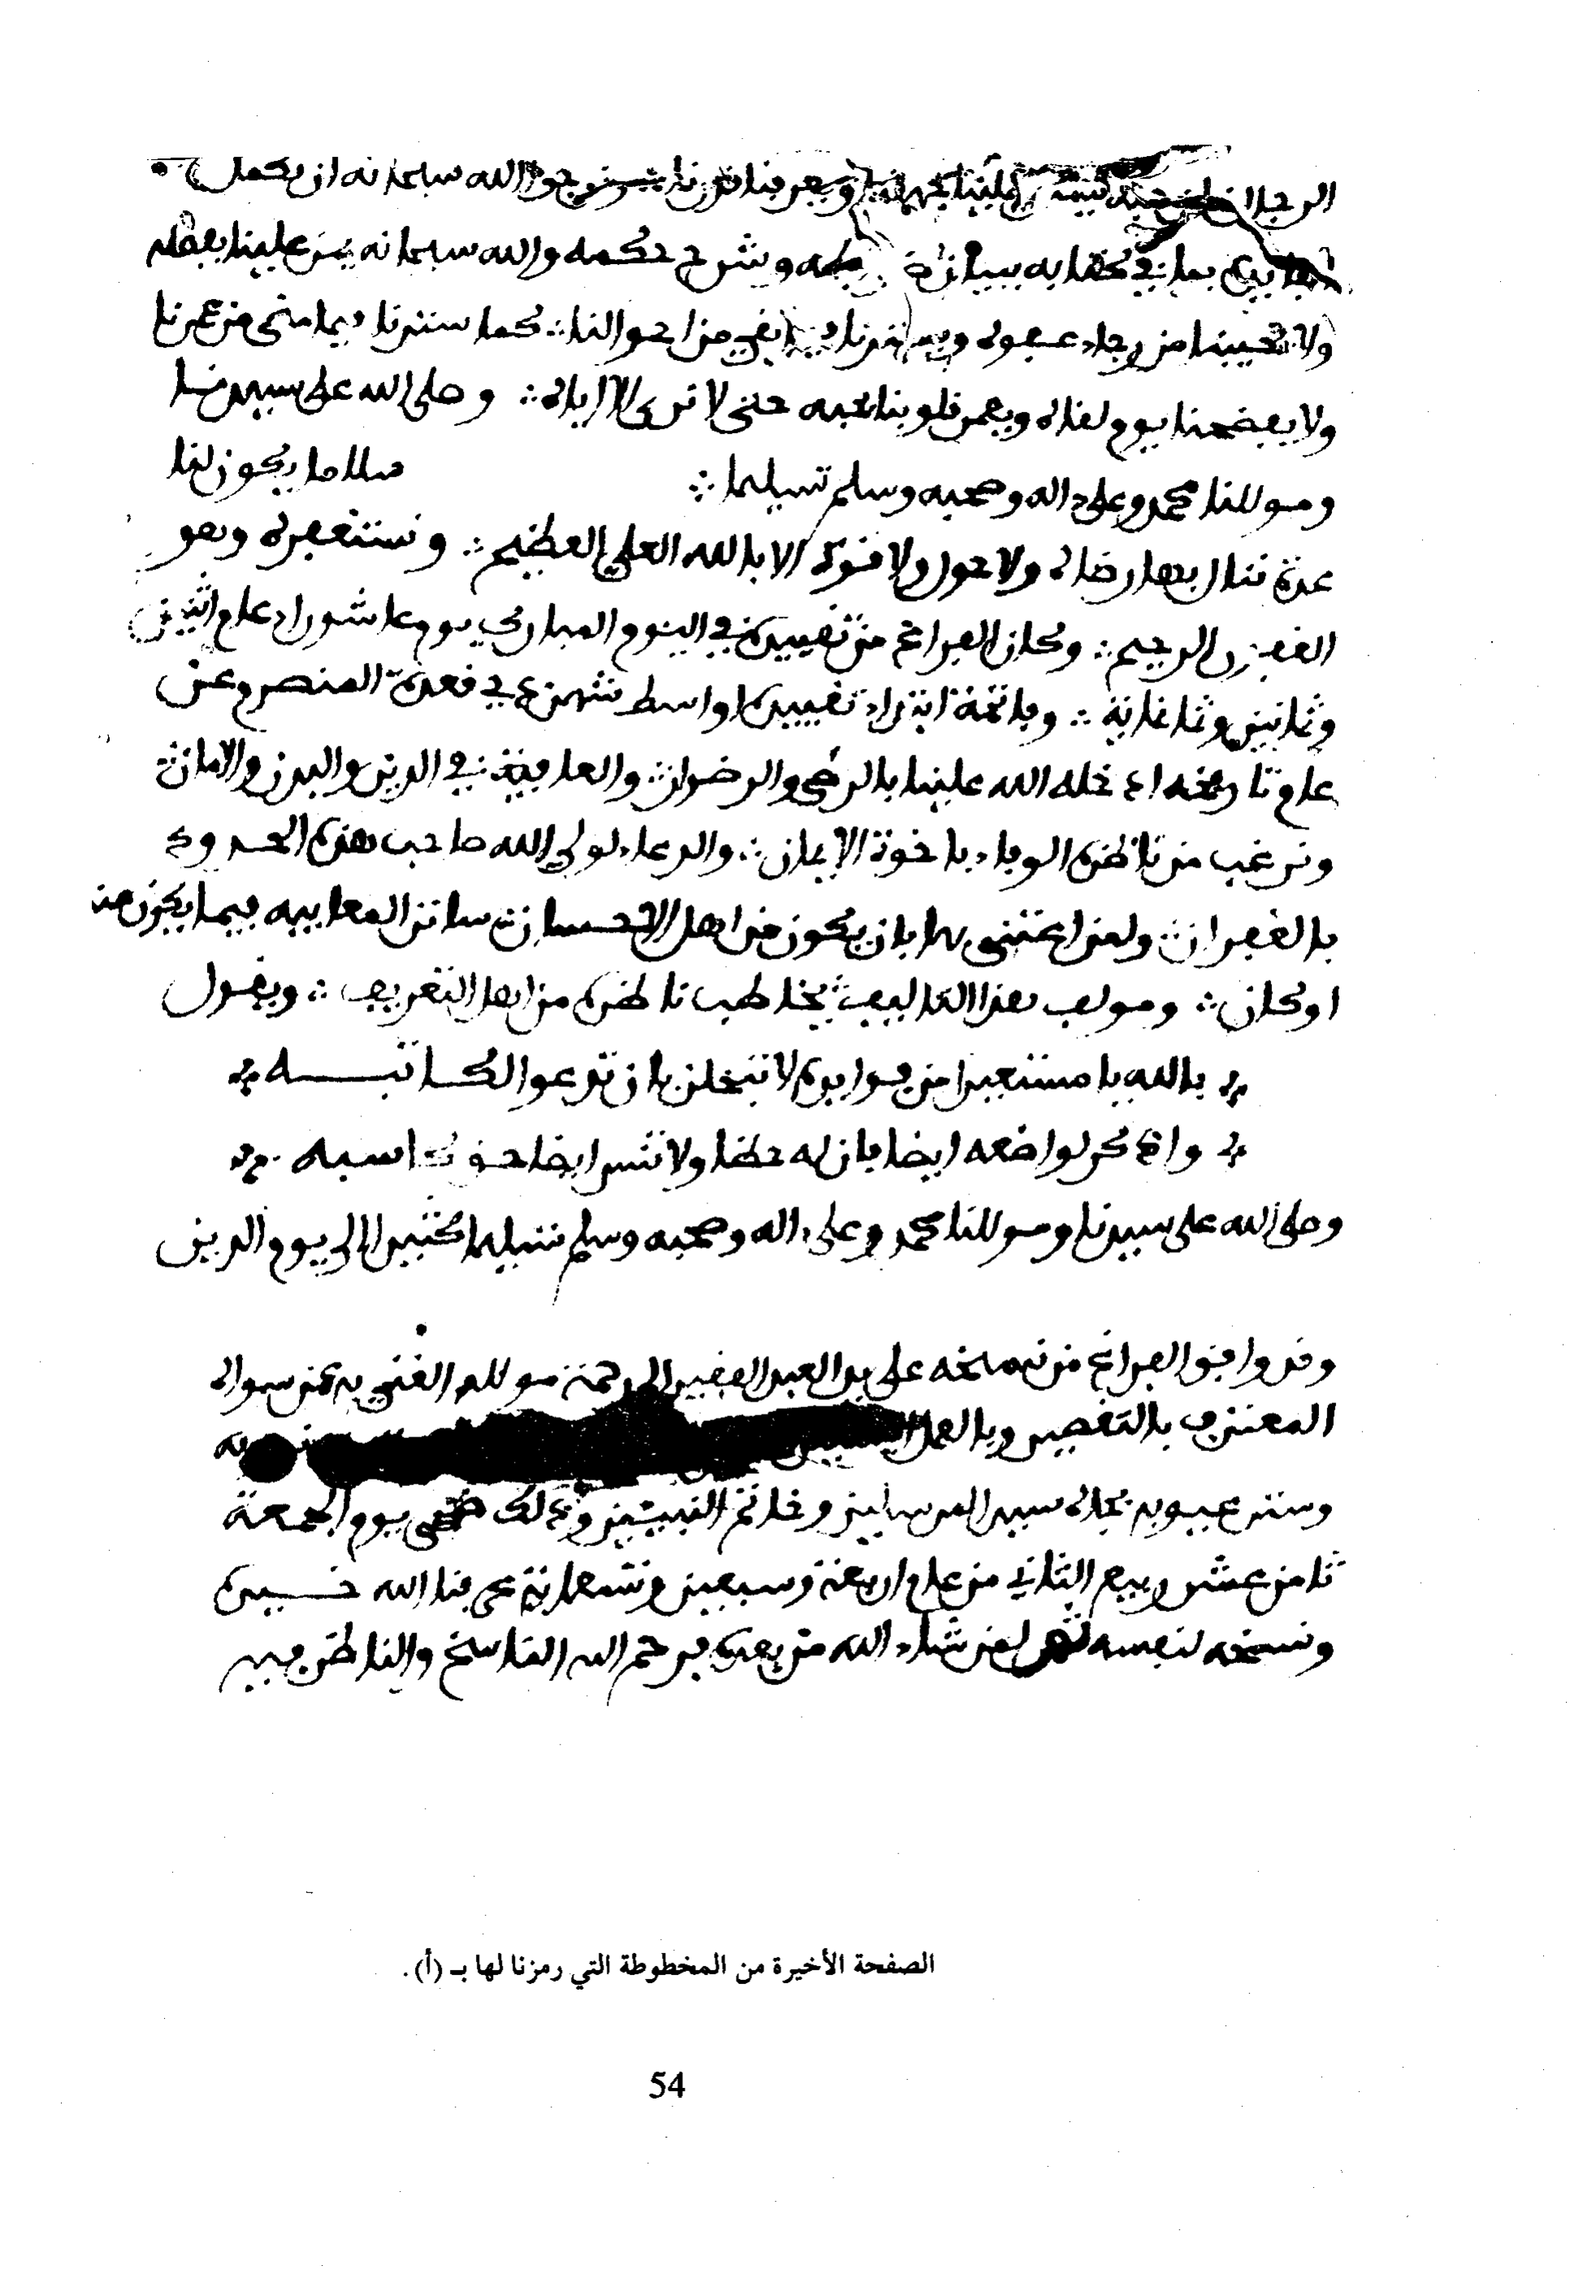 وعرفنا قدرنا نرجو الله سبحانه ان يكمل
بمعاني كتابه وشرح حكمه والله سبحانه يمن علينا بفضله
ولا يخيبنا من رجاء عفوه ويسترنا فيما بقي من احوالنا كما سترنا فيما مضى من عمرنا
ولا يفضحنا يوم لقائه ويعمر قلوبنا بحبه حتى لا نرى الا اياه وصلى الله على سيدنا
ومولانا محمد وعلى ءاله وصحبه وسلم تسليما سلاما يكون لنا
عدة ننال بها رضاه ولا حول ولا قوة الا بالله العلي العظيم ونستغفره وهو
الغفور الرحيم وكان الفراغ من تقييده في اليوم المبارك يوم عاشوراء عام اثنين
وثمانين وثمانمائة وباتحة ابتداء تقييده اواسط شهر ذي قعدة المنصرم عن
عام تاريخه ادخله الله علينا بالرضى والرضوان والعافية في الدين والبدن والامان
ونرغب من ناظره الوفاء باخوة الإيمان والدعاء لولي الله صاحب هذه الحدود
بالغفران ولمن اعتنى بها بان يكون من اهل الاحسان ساتر المعايبه فيما يكون منه
او كان ومولف هذا التاليف يخاطب ناظره من اهل التعريف ويقول
بالله يا مستفيدا من فوايده لا تبخلن بان تدعو الكاتبه
واذكر لواضعه ايضا بان له حظا ولا تنس ايضا حق كاسبه
وصلى الله على سيدنا ومولانا محمد وعلى ءاله وصحبه وسلم تسليما كثيرا الى يوم الدين
وقد وافق الفراغ من نسخه على يد العبد الفقير الى رحمة مولاه الغني به عمن سواه
المعترف بالتقصير وبالعمل
وستر عيوبه بجاه سيد المرسلين وخاتم النبيئين وذلك ضحى يوم الجمعة
ثامن عشر ربيع الثاني من عام اربعة وسبعين وتسعمائة عرفنا الله خيره
ونسخه لنفسه ثم لمن شاء الله من بعده فرحم الله الناسخ والناظر فيه
الصفحة الأخيرة من المخطوطة التي رمزنا لها بـ (أ).
54